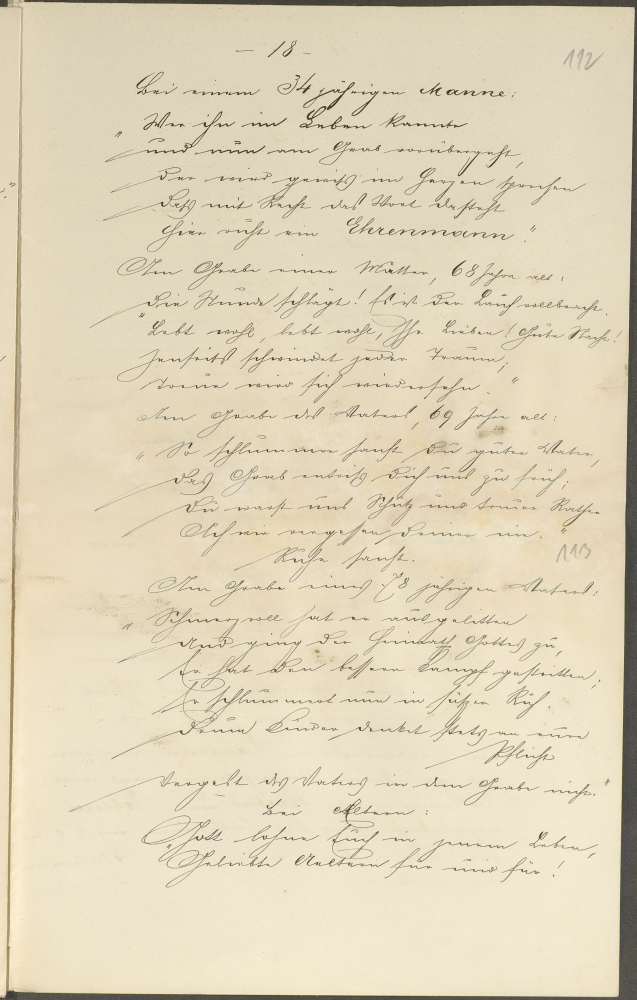 – 18 –
112
Bei einem 34 jährigen Manne:
„Wer ihn im Leben kannte
und nun am Grab vorübergeht,
der wird gewiß im Herzen sprechen
daß mit Recht das Wort dasteht
hier ruht ein Ehrenmann."
Am Grabe einer Mutter, 68 Jahre alt:
„Die Stunde schlägt! Es ist der Lauf vollbracht.
Lebt wohl, lebt wohl, Ihr Lieben! Gute Nacht!
Jenseits schwindet jeder Traum;
Treue wird sich wiedersehn."
Am Grabe des Vaters, 69 Jahre alt:
„So schlummre sanft du guter Vater,
Das Grab entriß dich uns zu früh;
Du warst uns Schutz und treuer Rather
Ach wir vergessen deiner nie."
Ruhe sanft.
113
Am Grabe eines 78 jährigen Vaters:
„Schmerzvoll hat er ausgelitten
Und ging der Heimath Gottes zu,
Er hat den bessern Kampf gestritten;
Er schlummert nun in süßer Ruh.
Drum Kinder denket stets an eure
Pflicht
Vergeßt des Vaters in dem Grabe nicht."
Bei Aeltern:
„Gott lohne Euch in jenem Leben,
Geliebte Aeltern für und für!